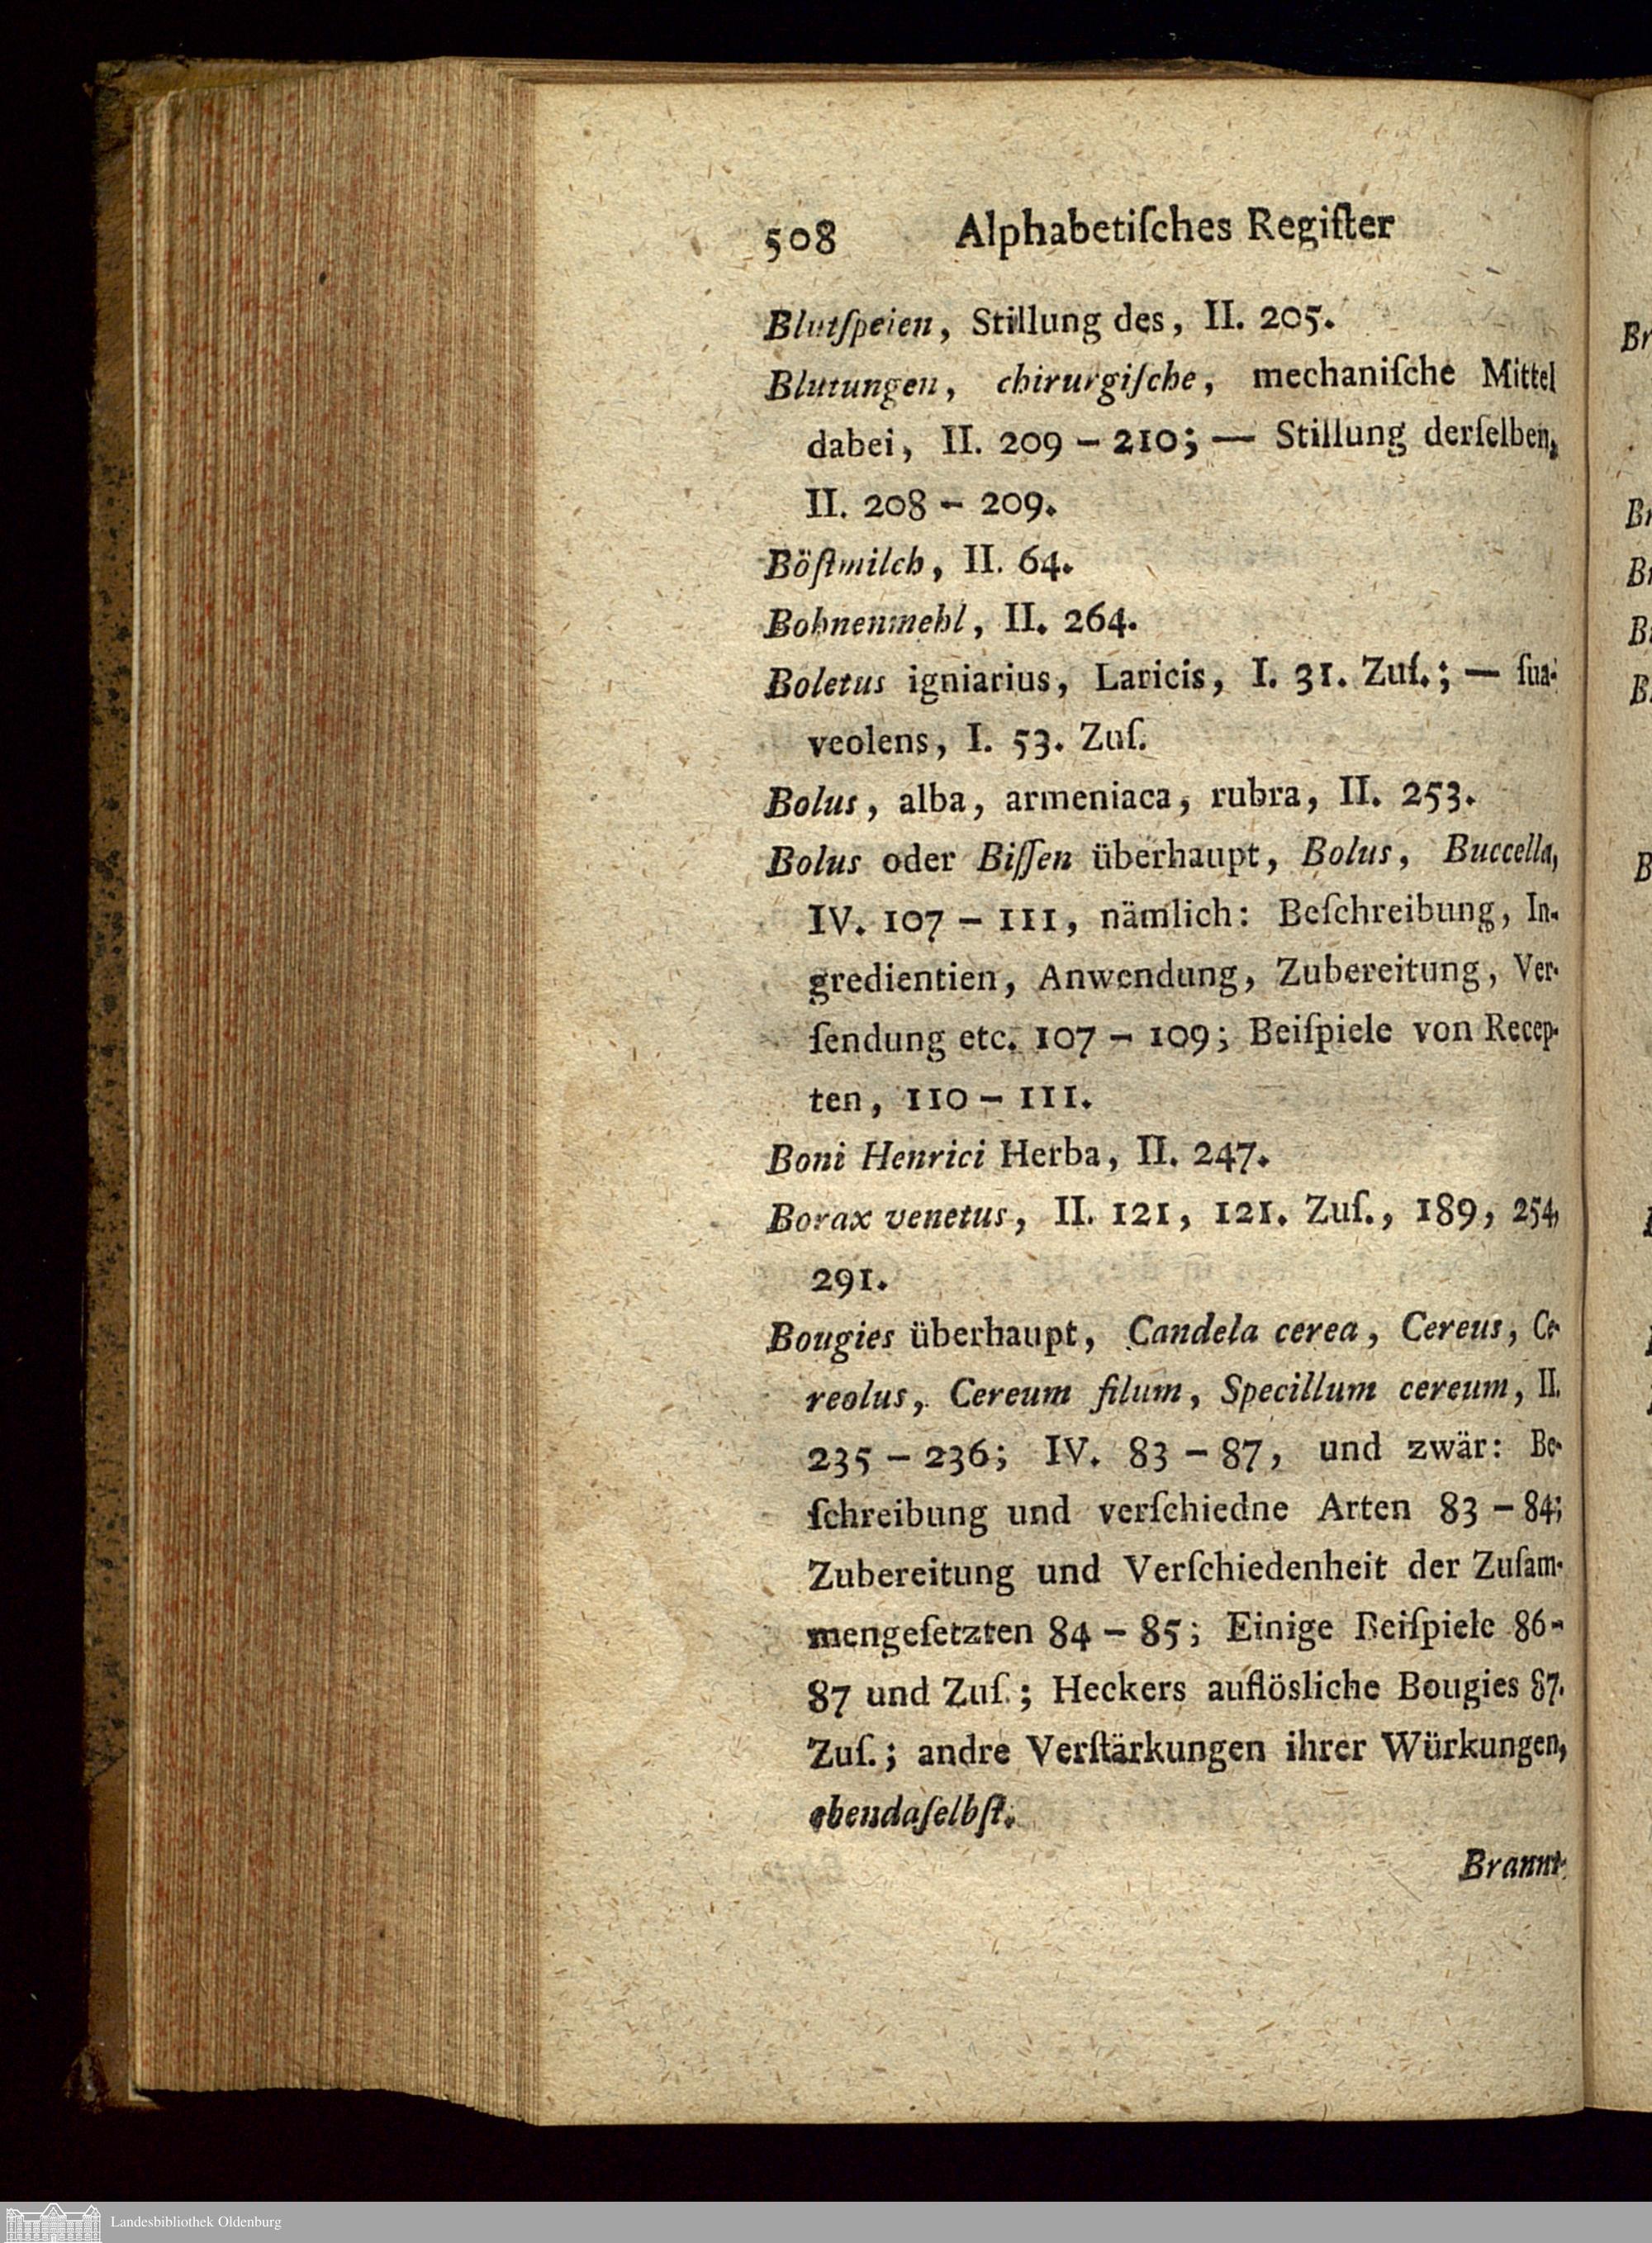 508 Alphabetiſches Regiſter
Blutſpeien, Stillung des, II. 205.
Blutungen, chirurgiſche, mechaniſche Mittel
dabei, II. 209 – 210; — Stillung derſelben,
II. 208 – 209.
Böſtmilch, II. 64.
Bohnenmehl, II. 264.
Boletus igniarius, Laricis, I. 31. Zuſ.; — ſua-
veolens, I. 53. Zuſ.
Bolus, alba, armeniaca, rubra, II. 253.
Bolus oder Biſſen überhaupt, Bolus, Buccella,
IV. 107 – 111, nämlich: Beſchreibung, In-
gredientien, Anwendung, Zubereitung, Ver-
ſendung etc. 107 – 109; Beiſpiele von Recep-
ten, 110 – 111.
Boni Henrici Herba, II. 247.
Borax venetus, II. 121, 121. Zuſ., 189, 254,
291.
Bougies überhaupt, Candela cerea, Cereus, Ce-
reolus, Cereum filum, Specillum cereum, II.
235 – 236; IV. 83 – 87, und zwär: Be-
ſchreibung und verſchiedne Arten 83 – 84;
Zubereitung und Verſchiedenheit der Zuſam-
mengeſetzten 84 – 85; Einige Beiſpiele 86 –
87 und Zuſ.; Heckers auflösliche Bougies 87.
Zuſ.; andre Verſtärkungen ihrer Würkungen,
ebendaſelbſt.
Brannt-
Br
Br
Br
B
B
B
Landesbibliothek Oldenburg